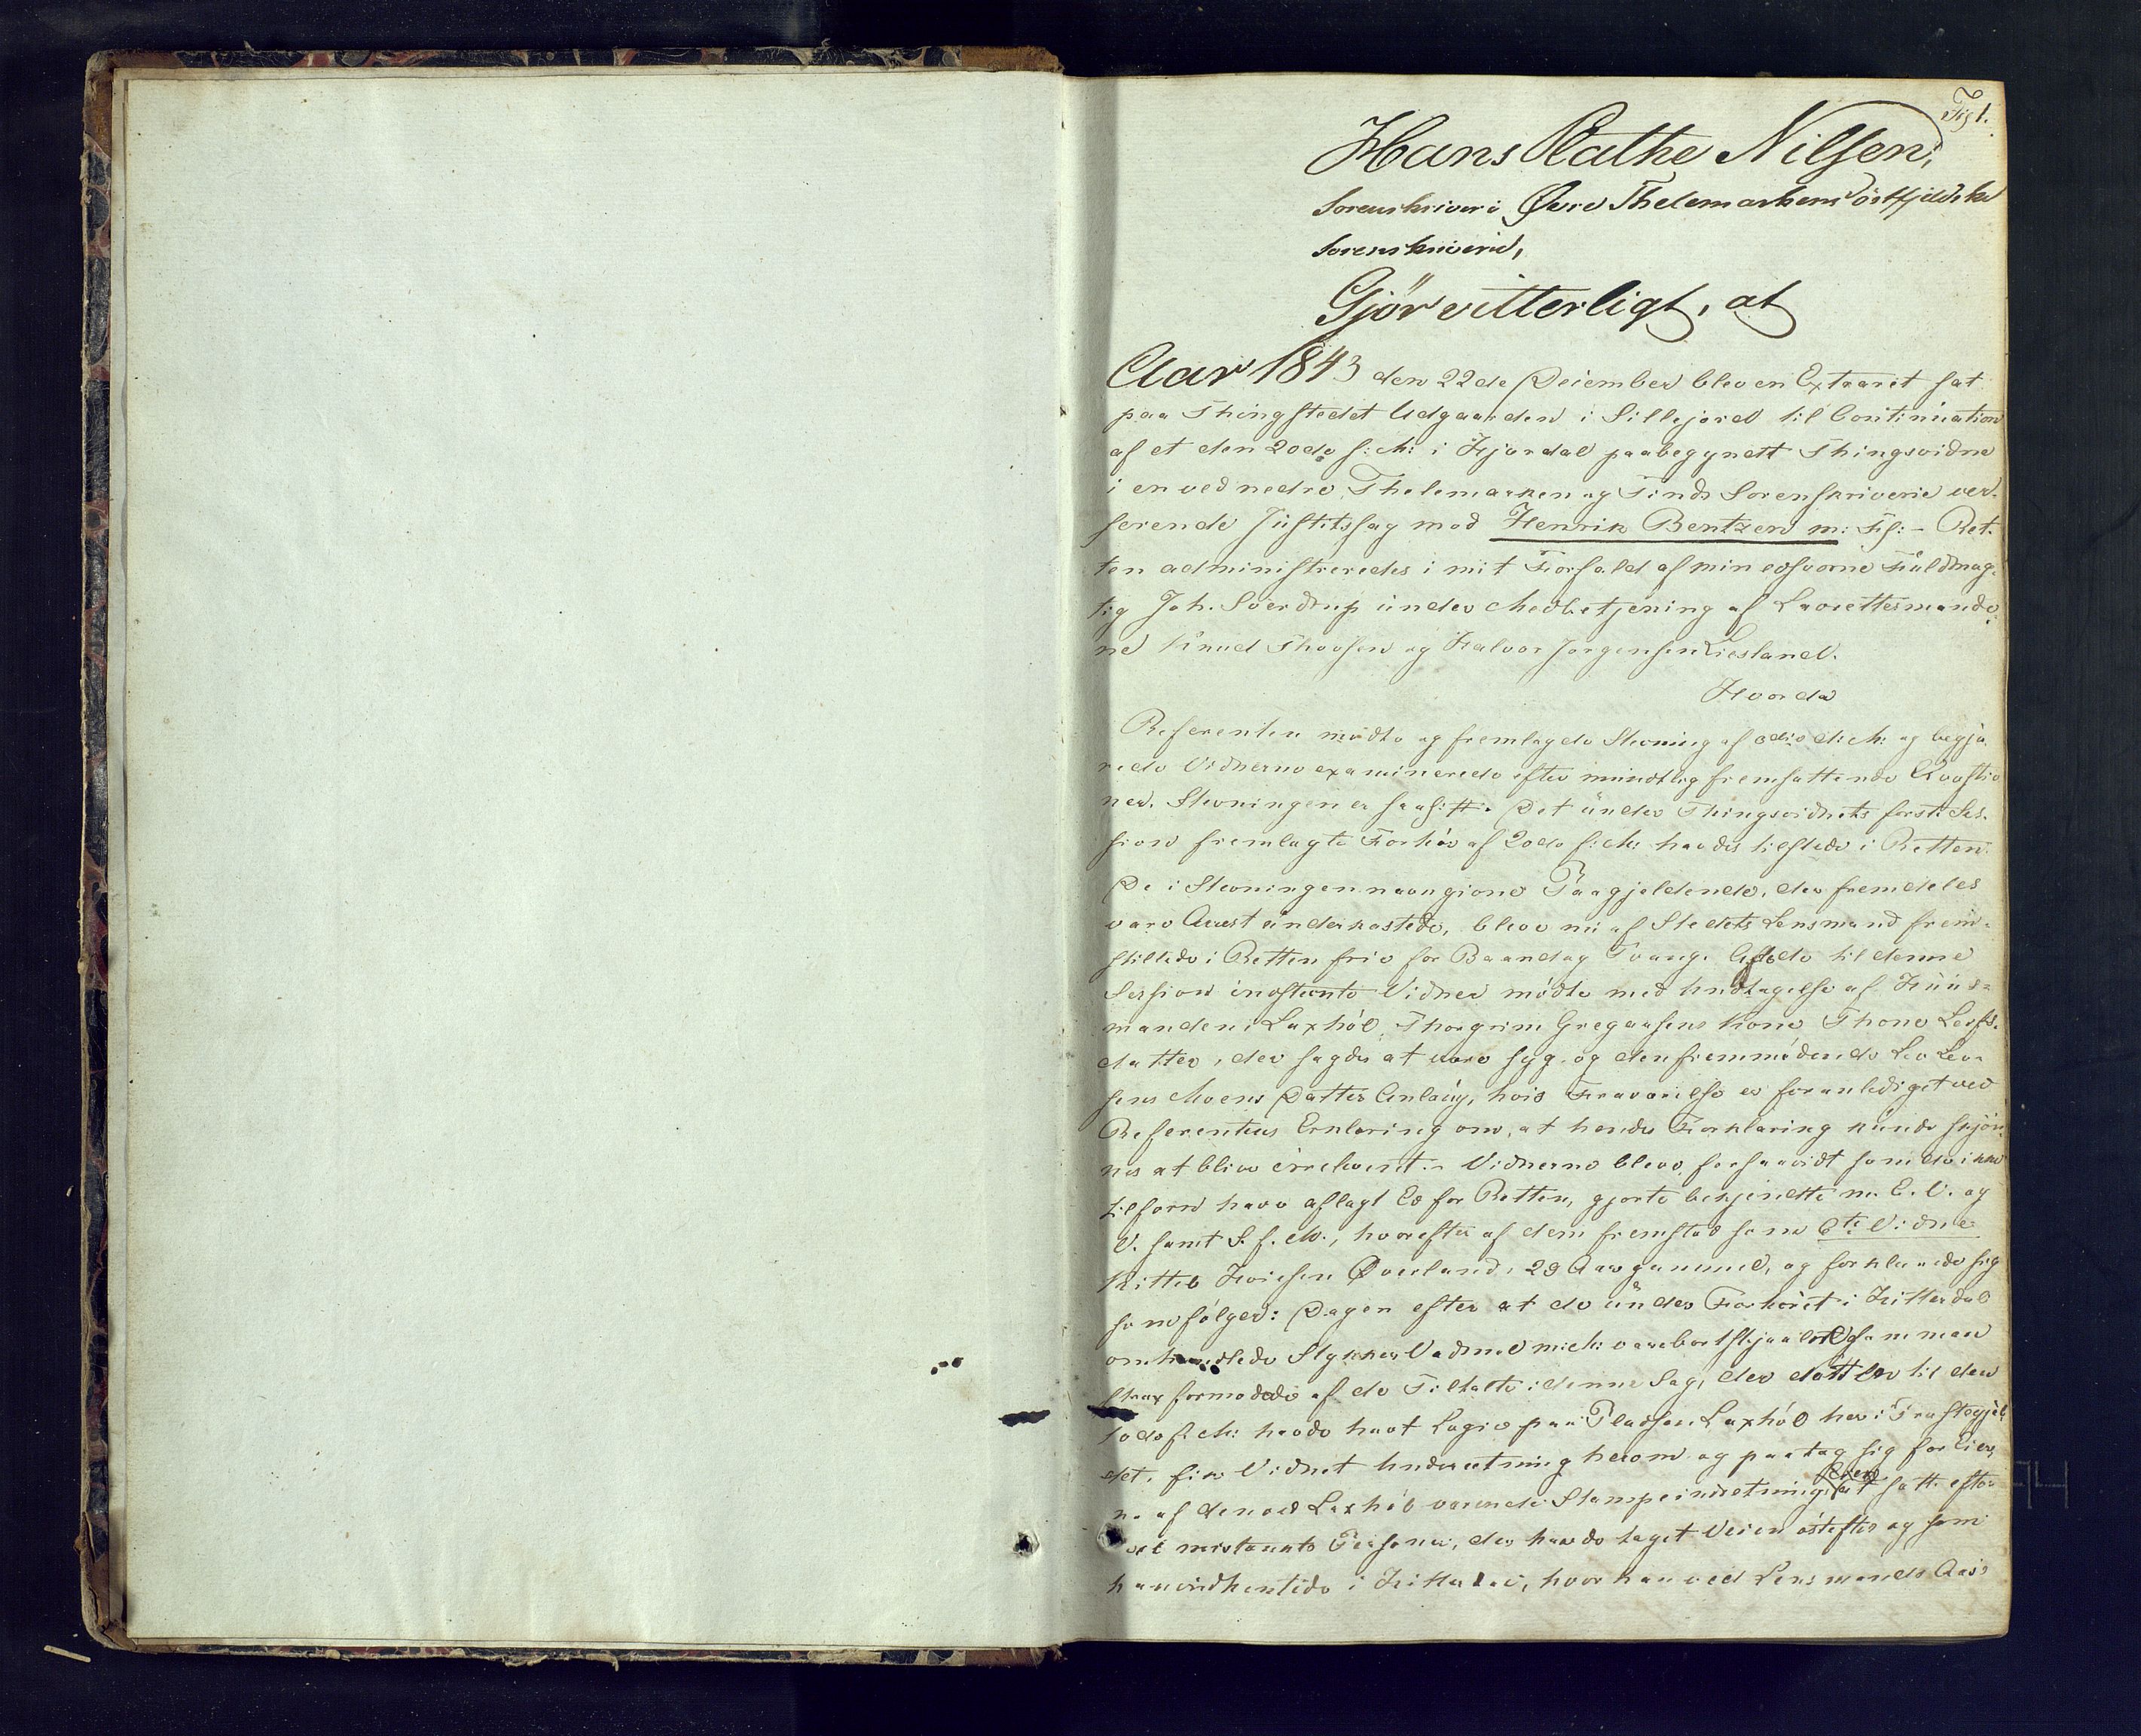 Fig 1.
Hans Rathe Nilsen,
Sorenskriver i Øvre Thelemarkens östfjeldske
Sorenskriveri,
Gjör vitterligt, at
Aar 1843 den 22de December blev en Extraret sat
paa Thingstedet Udgaarden i Sillejord til Continuation
af et den 20de s: M: i Hjerdal paabegyndt Thingsvidne
i en ved nedre Thelemarken og Tinds Sorenskriverie ver-
serende Justitssag mod Henrik Bentzen m: Fl: - Ret-
ten administreredes i mit Forfald af min edsvorne Fuldmæg-
tig Joh. Sverdrup under Medbetjening af Lavrettesmænde-
ne Knud Thovsen og Halvor Jörgensen Liesland.
Hvorda
Referenten mödte og fremlagde Stevning af d: M: og begjæ-
rede Vidnerne examinerede efter mundtlig fremsattende Qvæstio-
ner. Stevningen er saa: Det under Thingsvidnets förste Ses-
sion fremlagte Forhör af 20de s: M: havdes tilstede i Retten.
De i Stevningen navngivne Paagjeldende, der fremdeles
vare Arrest underkastede, bleve nu af Stedets Lensmand frem-
stillede i Retten frie for Baand og Tvang. Af de til denne
Session indstevnte Vidner mödte med Undtagelse af Huus-
manden i Laxhöl Thorgrim Gregarsens Kone Thone Leifs-
datter, der sagdes at være syg, og den fremmödende Lev Lev-
sens Moens Datter Anlaug, hvis Fraværelse er foranlediget ved
Referentens Erklæring om, at hendes Forklaring kunde skjön-
nes at blive irrelevant. Vidnerne bleve, forsaavidt som de ikke
tilforn have aflagt Ed for Retten, gjorte bekjendte m. E. V. og
V. samt S. f. M., hvorefter af dem fremstod som 6te Vidne
Kittel Øverland, 29 Aar gammel, og forklarede sig
som fölger: Dagen efter at de under Forhöret i Hitterdal
omhandlede Stykker Vadmel m: M: vare bortstjaalne, som man
strax formodede af de Tiltalte i denne Sag, der Natten til den
s: M: havde havt Logie paa Pladsen Laxhöl her i Præstegjel-
det, fik Vidnet Underretning herom og paatog sig for Eier-
ne af den ved Laxhöl værende Stampeindretning, at satte efter
mistænkte Personer, der havde taget Veien östefter og som
han indhentede i Hitterdal, hvor han ved Lensmands Assi-